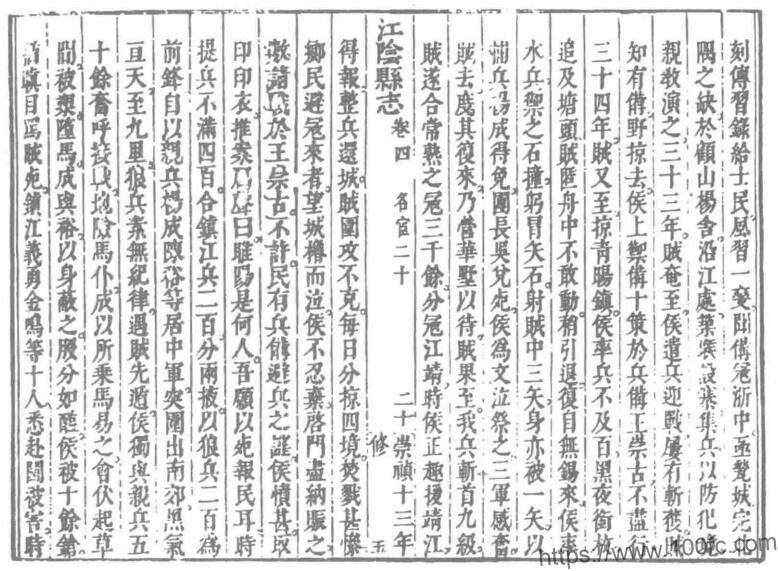 刻傳習錄給士民風習一變聞倭寇浙中亟甃城完
隅之缺於顧山楊舍沿江處築寨設
集兵以防
親敎演之三十三年賊奄至侯遣兵迎戰屢有斬獲
知有備野掠去侯上禦倭十策於兵備王崇古不盡行
三十四年賊又至掠青陽鎮侯率兵不及百黑夜銜枚
追及塘頭賊匿舟中不敢動稍引退復自無錫來侯率
水兵禦之石撞躬冒矢石射賊中三矢身亦被一矢以
兵楊成得免團長吳兌死侯為文泣祭之三軍感奮
賊去度其復來乃營華墅以待賊果至我兵斬首九級
賊遂合常熟之寇三千餘分寇江靖時侯正趣援靖江
江陰縣志 卷四 名宦二十 二十 崇禎十三年修 五
得報整兵還城賊圍攻不克每日分掠四境焚戮甚慘
鄉民避寇來者望城櫓而泣侯不忍棄啓門盡納賑之
請戰於王崇古不許民有兵備避兵之謠侯憤甚取
印印衣推案
曰睢陽是何人吾願以死報民耳時
提兵不滿四百合鎮江兵二百分兩掖以狼兵二百為
前鋒自以親兵楊成陳裕等居中軍突圍出南郊黑氣
亘天至九里狼兵素無紀律遇賊先遁侯獨與親兵五
十餘奮呼
馬仆成以所乘馬易之會伏起草
間被
墮馬成與裕以身蔽之股分如
侯被十餘鎗
瞋目罵賊死鎮江義勇金鳴等十人悉赴鬪被害時
https://www.100fc.com